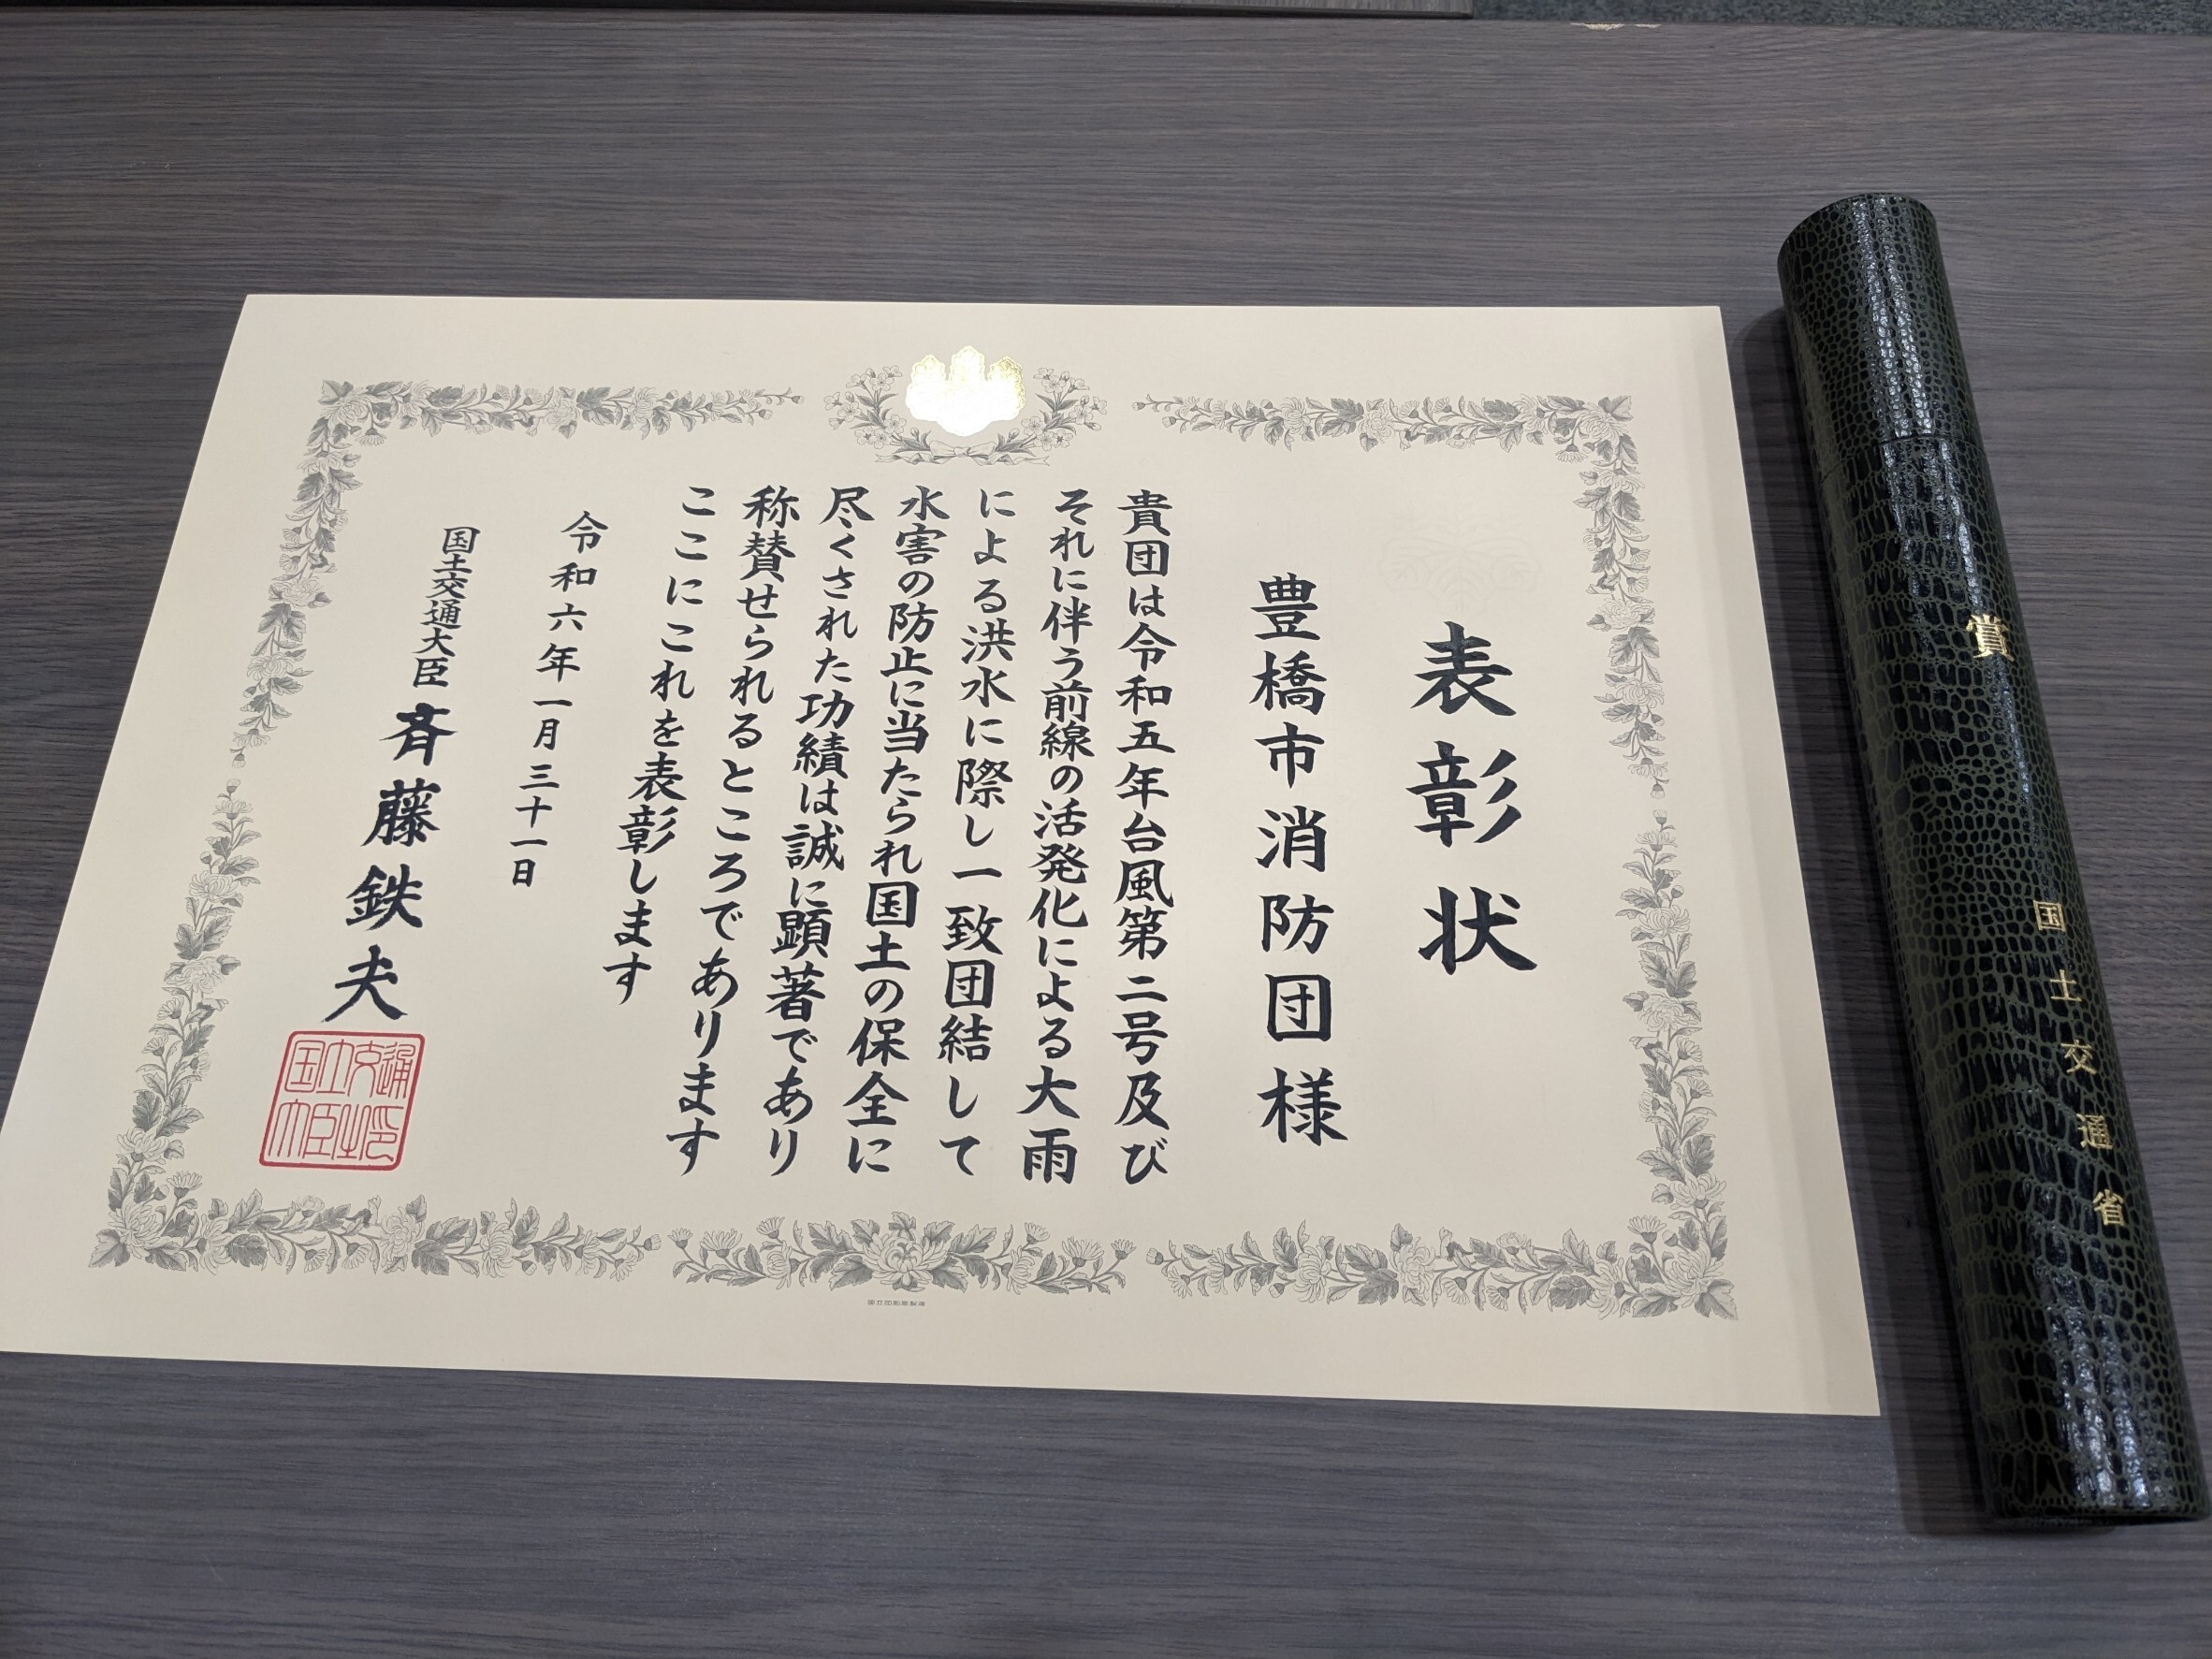 表彰状
豊橋市消防団様
貴団は令和五年台風第二号及び
それに伴う前線の活発化による大雨
による洪水に際し一致団結して
水害の防止に当たられ国土の保全に
尽くされた功績は誠に顕著であり
称賛せられるところであります
ここにこれを表彰します
令和六年一月三十一日
国土交通大臣 斉藤鉄夫
国土交通
大臣之印
国立印刷局製造
賞
国土交通省